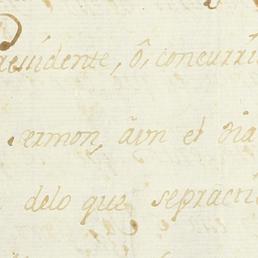 residente, ô, concurri
sermon, âvn el dia
delo que sepracti